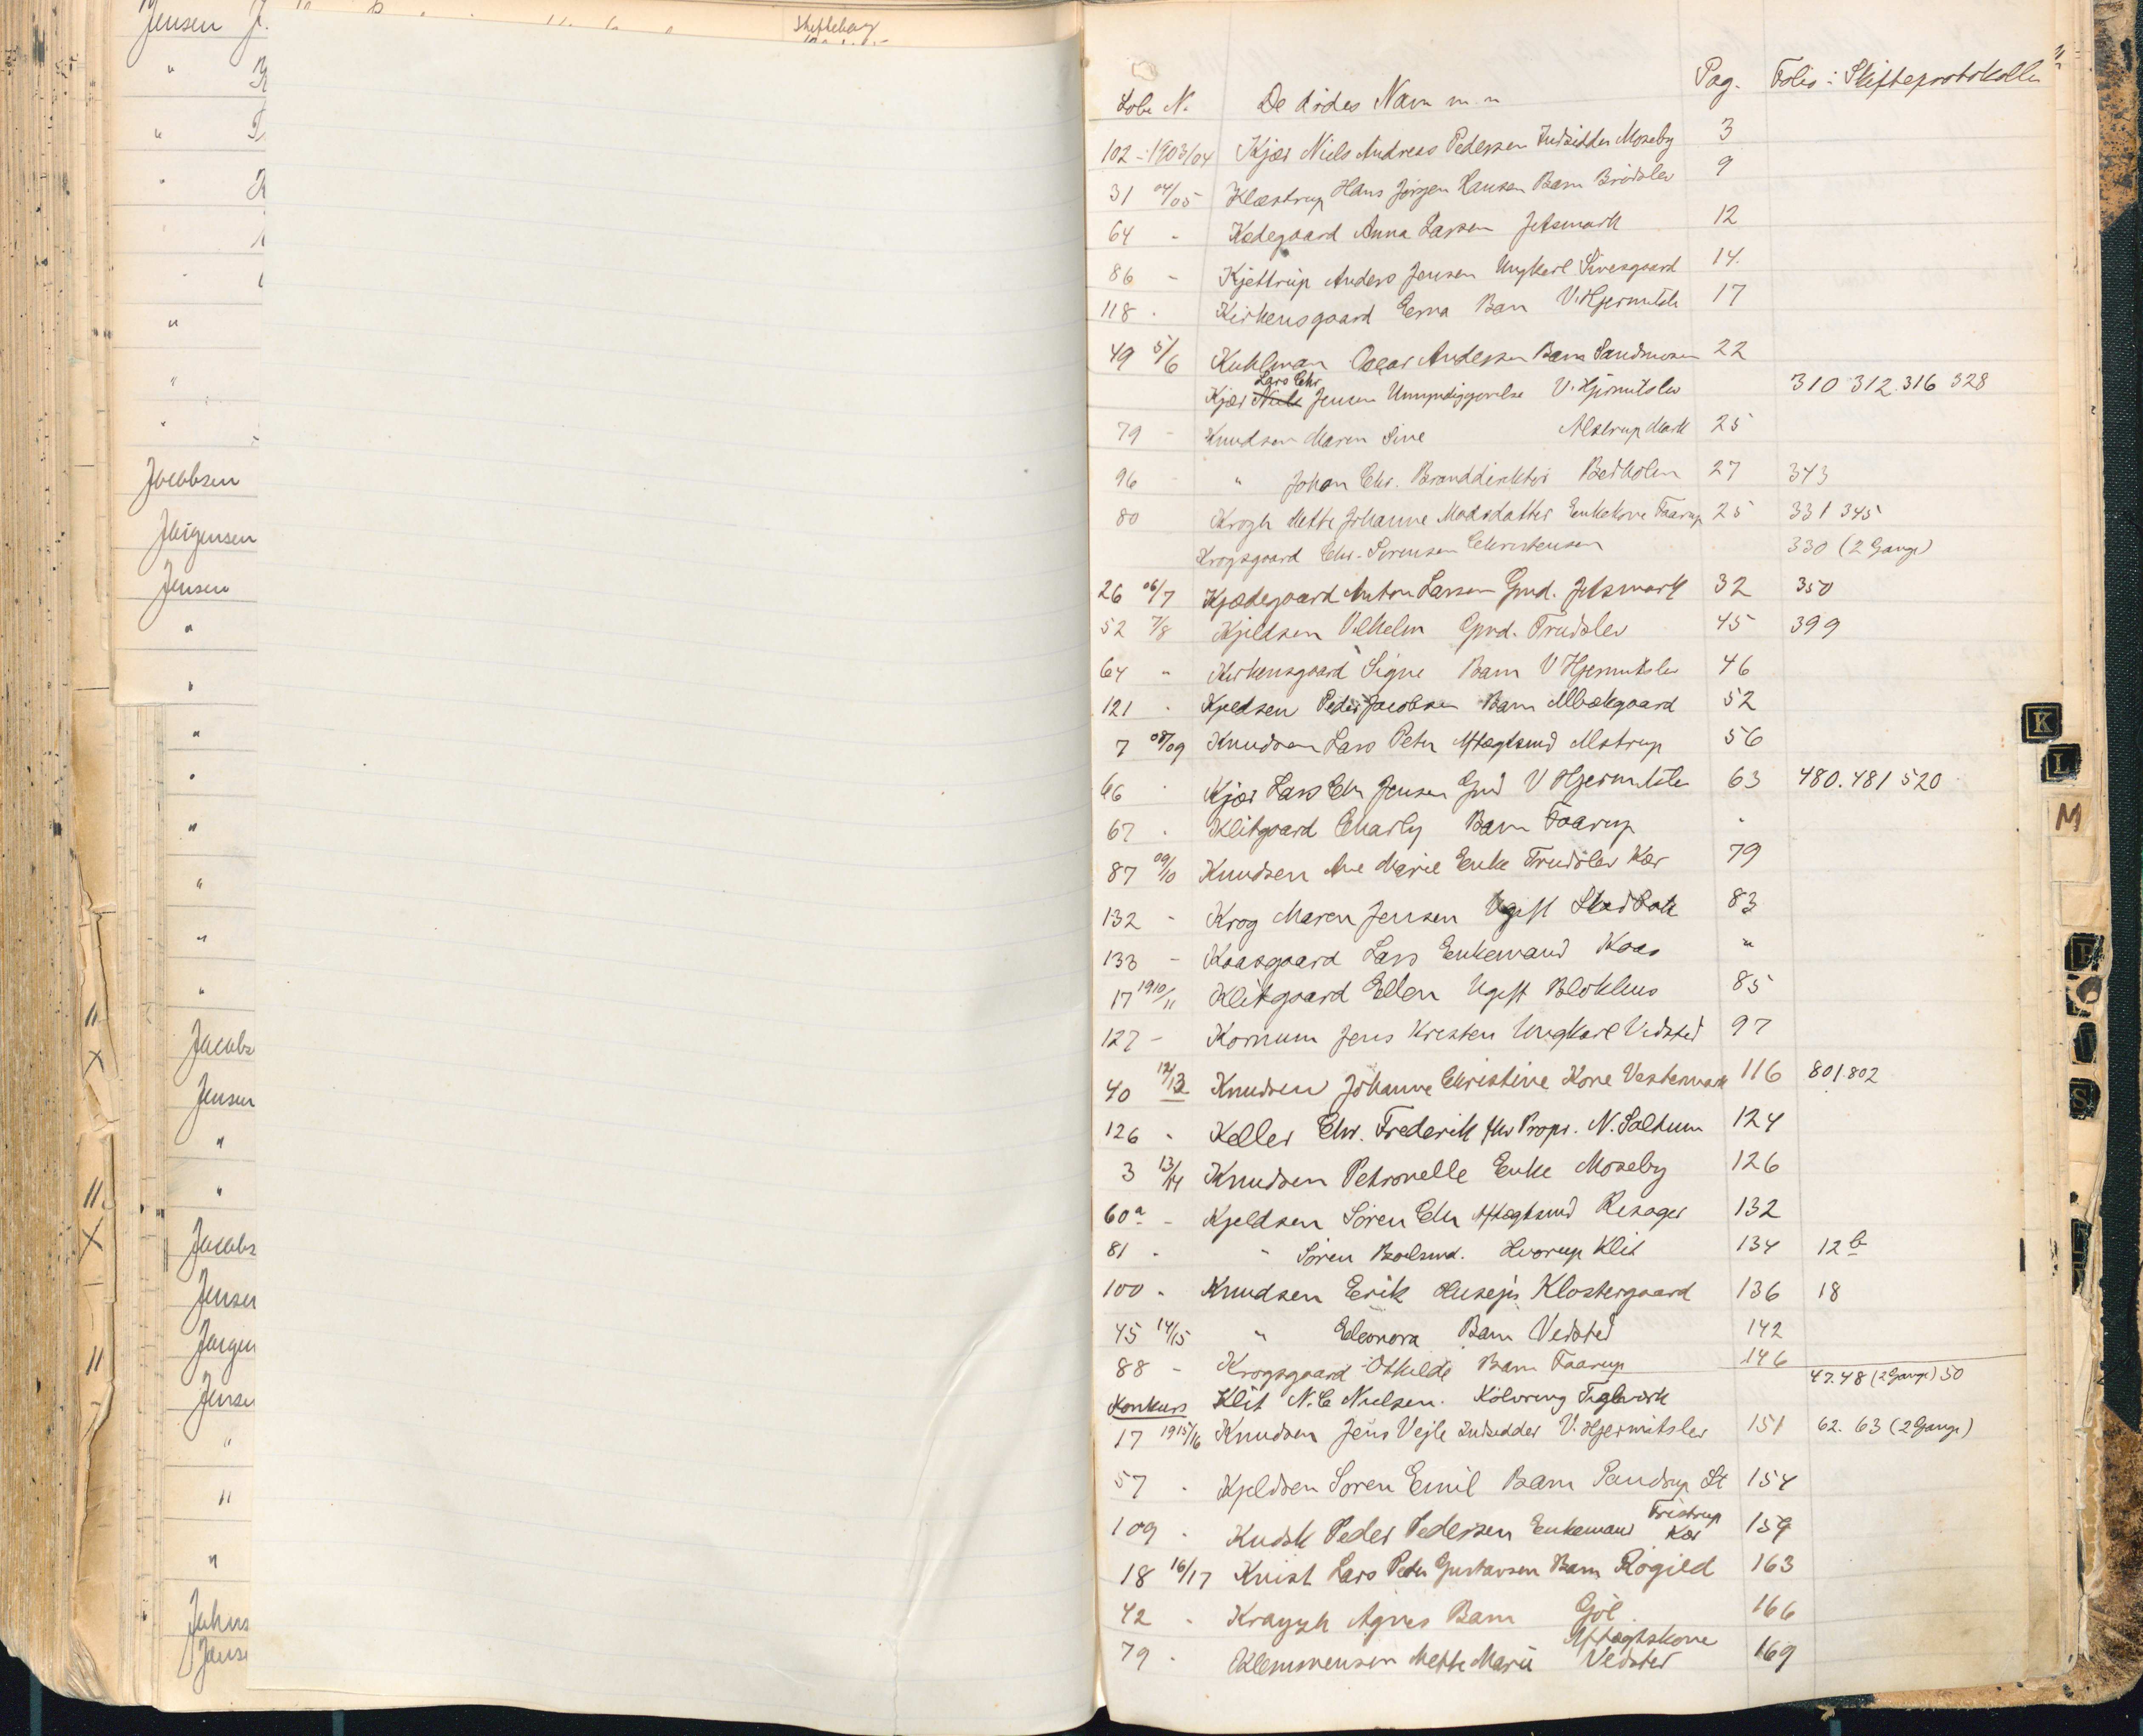 Jensen J.
"
"
"
"
"
Jacobsen
Jörgensen
Jensen
"
"
"
"
"
"
"
"
Jacobs
Jensen
"
"
Jacobs
Jensen
Jörgen
Jensen
"
"
"
Johns
Jens
Löbe N. De dödes Navn m. m Pag. Folio i Skifteprotokollen
102 - 1903/04 Kjær Niels Andreas Pedersen Indsidder Moseby 3
31 04/05 Klæstrup Hans Jörgen Hansen Barn Brödslev 9
64 - Kædegaard Anna Larsen Jetsmark 12
86 - Kjettrup Anders Jensen Ungkarl Sivesgaard 14.
118 . Kirkensgaard Erna Barn V. Hjermitslev 17
49 5/6 Kuhlman Oscar Andersen Barn Sandmosen 22
Lars Chr
Kjær Niels Jensen Umyndiggjørelse V. Hjermitslev 310 312. 316 328
79 - Knudsen Maren Sine Alstrup Mark 25
96 - " Johan Chr. Branddirektör Bedholm 27 343
80 Krogh Mette Johanne Madsdatter Enkekone Faarup 25 331 345
Krogsgaard Chr. Sörensen Christensen 330 (2 Gange)
26 06/7 Kjædegaard Anton Larsen Gmd. Jetsmark 32 350
52 7/8 Kjeldsen Vilhelm Gmd. Trudslev 45 399
64 " Kirkensgaard Signe Barn V Hjermitslev 46
121 . Kjeldsen Peder Jacobsen Barn Albækgaard 52
7 08/09 Knudsen Lars Peter Aftægtsmd Alstrup 56
66 . Kjær Lars Chr Jensen Gmd V Hjermitslev 63 480. 481 520
67 . Klitgaard Charly Barn Faarup "
87 09/10 Knudsen Ane Marie Enke Trudslev Kær 79
132 - Krog Maren Jensen Ugift 83
133 - Kaasgaard Lars Enkemand Kaas "
17 1910/11 Klitgaard Ellen Ugift Blokhus 85
127 - Kornum Jens Kresten Ungkarl Vedsted 97
40 12/13 Knudsen Johanne Christine Kone Vestermark 116 801. 802
126 . Keller Chr. Frederik fhv Propr. N. Saltum 124
3 13/14 Knudsen Petronelle Enke Moseby 126
60a - Kjeldsen Sören Chr Aftægtsmd Resager 132
81 . " Sören Boelsmd. Hvorup Klit 134 12 b
100 . Knudsen Erik Husejr Klostergaard 136 18
45 14/15 " Eleonora Barn Vedsted 142
88 - Krogsgaard Othilde Barn Faarup 146
Konkurs Klit N. C Nielsen. Kölvring Teglværk 47. 48 (2 Gange) 50
17 1915/16 Knudsen Jens Vejle Indsidder V. Hjermitslev 151 62. 63 (2 Gange)
57 . Kjeldsen Sören Emil Barn Pandrup St 154
109 . Kudsk Peder Pedersen Enkemand Fristrup Kær 159
18 16/17 Kvist Lars Peder Gustavsen Barn Rögild 163
42 . Kragh Agnes Barn Gjöl 166
79 . Klemmensen Mette Marie Aftægtskone Vedsted 169
K
L
M
P
S